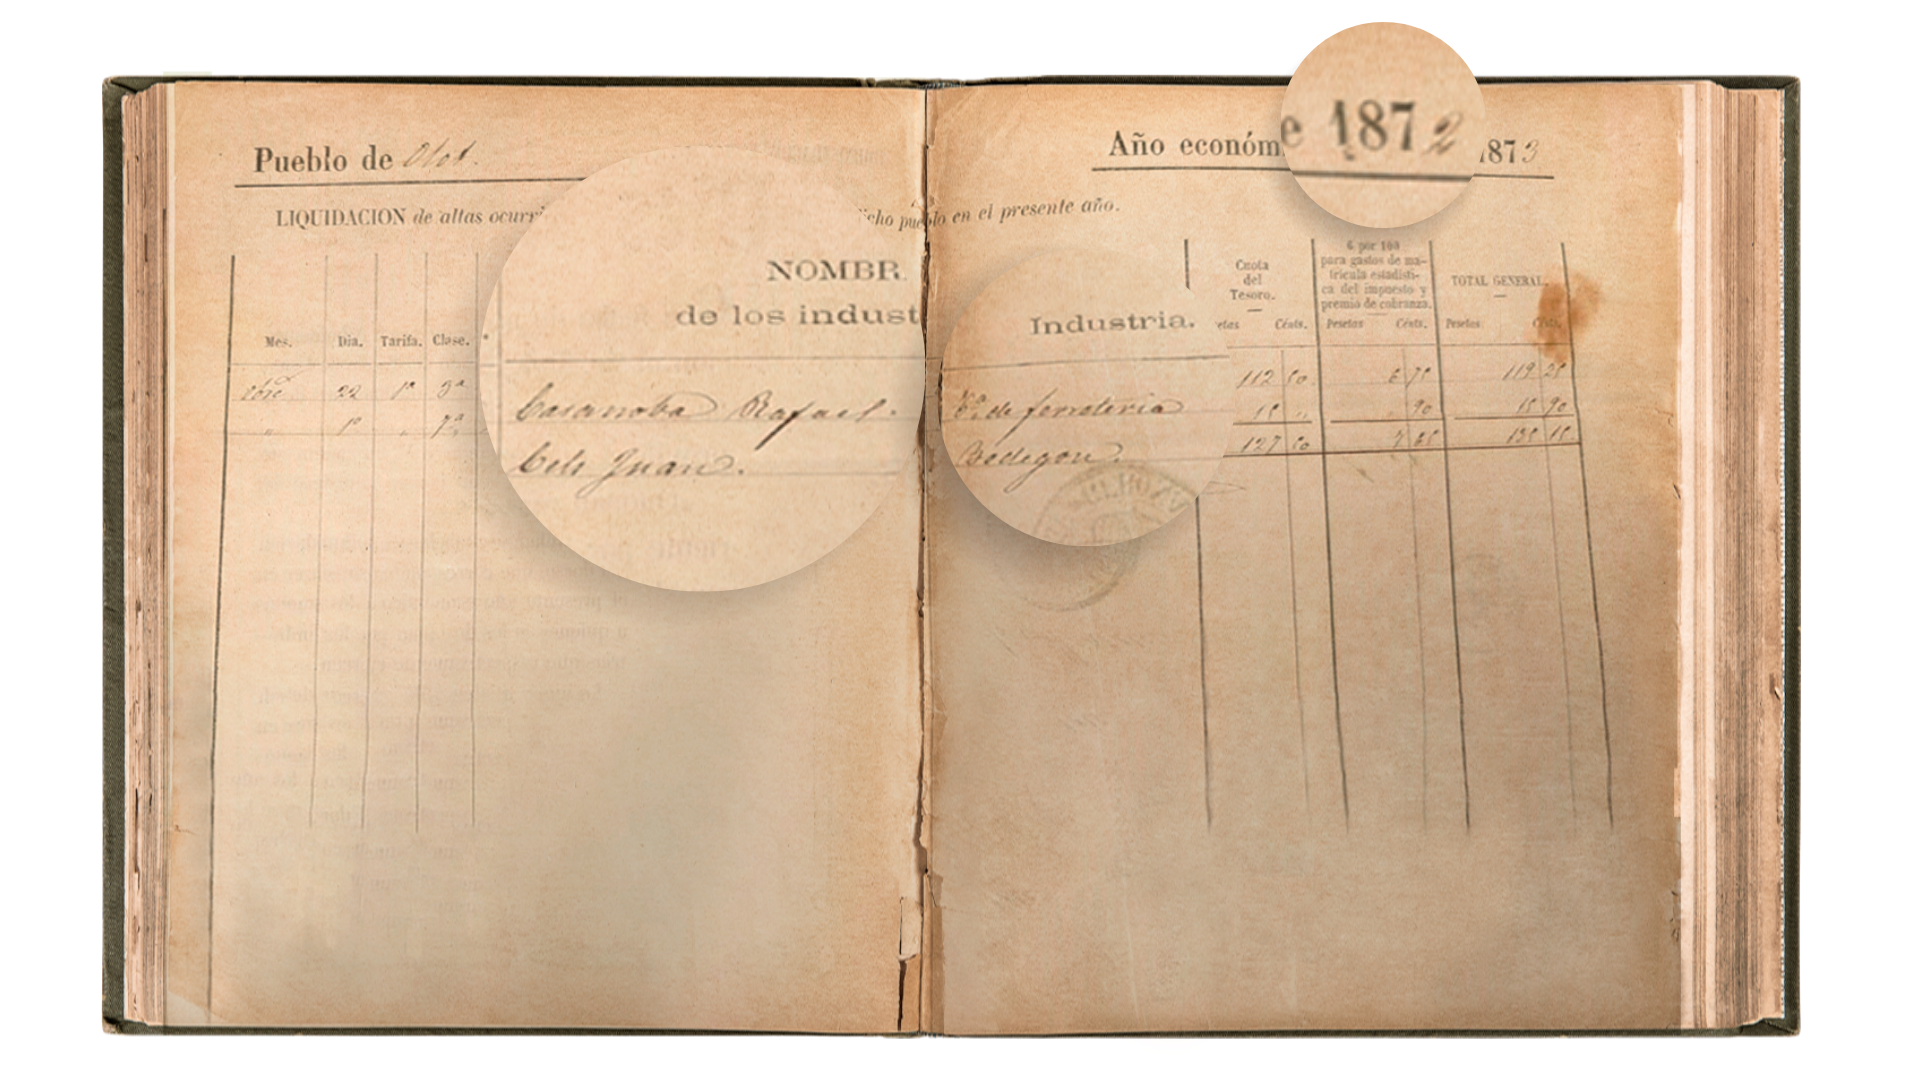 Pueblo de Olot.
Año económ
e 1872
1873
LIQUIDACION de altas ocurri
icho pueblo en el presente año.
Mes.
Dia.
Tarifa.
Clase.
NOMBR
de los indust
Industria.
Cuota
del
Tesoro.
etas Cénts.
6 por 100
para gastos de ma-
trícula estadísti-
ca del impuesto y
premio de cobranza.
Pesetas Cénts.
TOTAL GENERAL.
Pesetas Cénts.
22 1ª 3ª Casanoba Rafael. de ferreteria 112 50 6 75 119 25
1º „ 7ª Juan. Bodegon. 15 „ „ 90 15 90
127 50 7 65 135 15